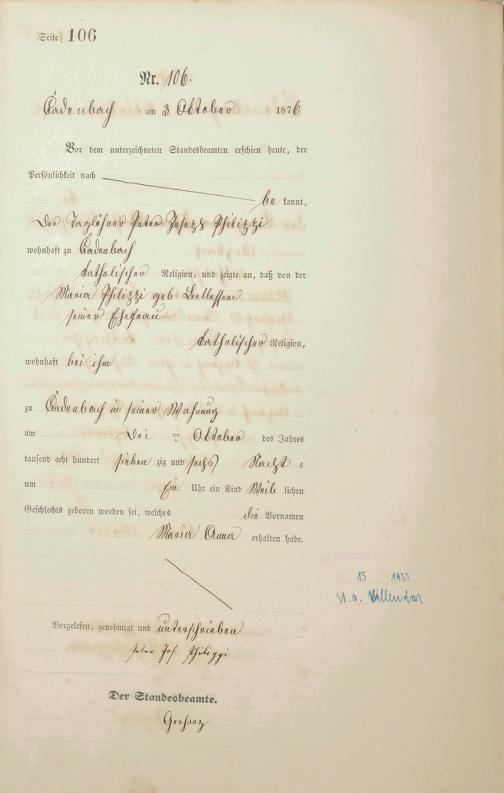 Seite 106
Nr. 106.
Cadenbach am 3 Oktober 1876
Vor dem unterzeichneten Standesbeamten erschien heute, der
Persönlichkeit nach
be kannt,
Der Taglöhner Peter Joseph Philippi
wohnhaft zu Cadenbach
katholischer Religion, und zeigte an, daß von der
Maria Philippi geb
seiner Ehefrau
katholischer Religion,
wohnhaft bei ihm
zu Cadenbach in seiner Wohnung
am Oktober des Jahres
tausend acht hundert sieben zig und sechs Nachts
um Ein Uhr ein Kind Weib lichen
Geschlechts geboren worden sei, welches die Vornamen
Maria Anna erhalten habe.
Vorgelesen, genehmigt und unterschrieben
Peter Jos. Philippi
Der Standesbeamte.
Gerharz
15 1953
St. a. Vallendar